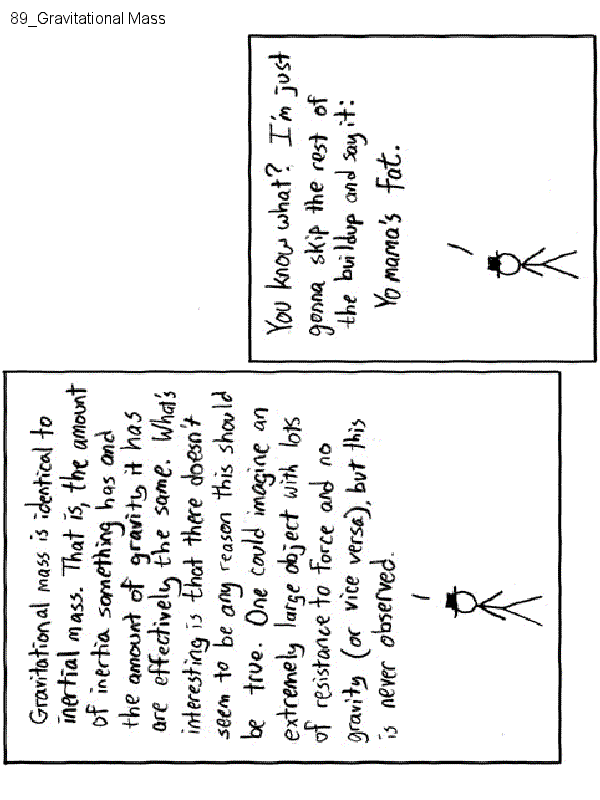 89_Gravitational Mass
Gravitational mass is identical to
inertial mass. That is, the amount
of inertia something has and
the amount of gravity it has
are effectively the same. What's
interesting is that there doesn't
seem to be any reason this should
be true. One could imagine an
extremely large object with lots
of resistance to force and no
gravity (or vice versa), but this
is never observed.
You know what? I'm just
gonna skip the rest of
the buildup and say it:
Yo mama's fat.